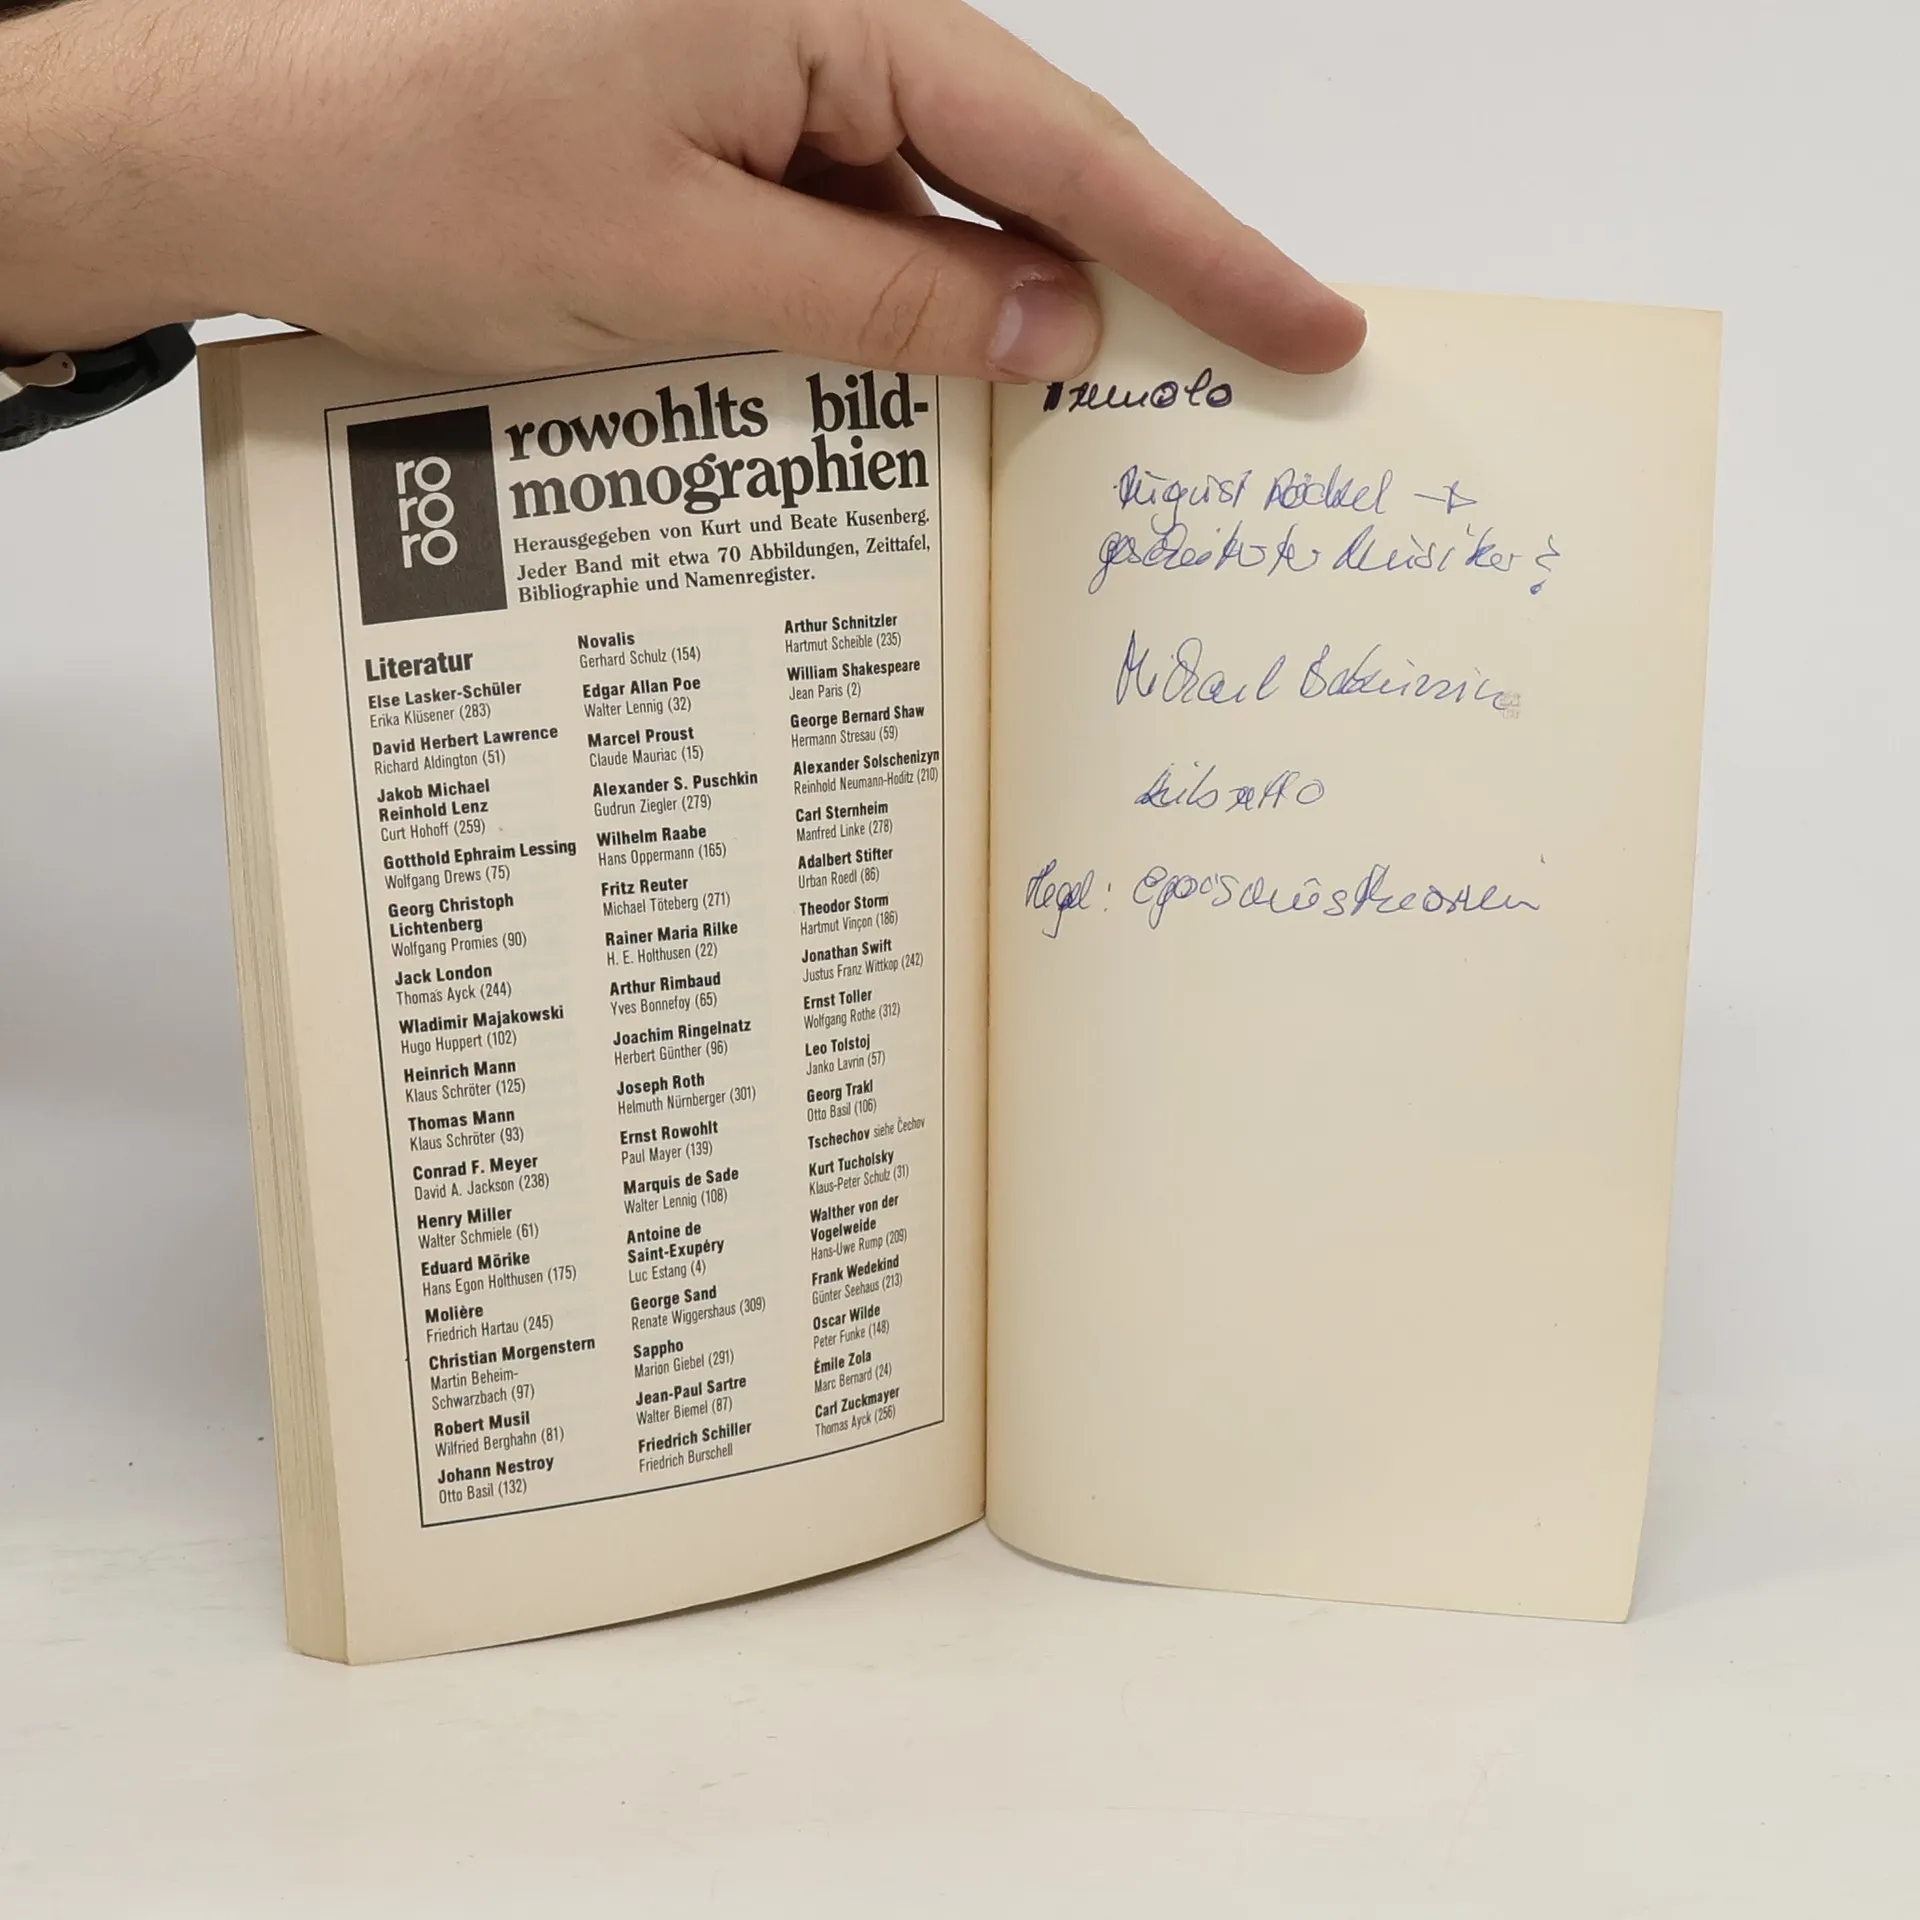 ro
ro
ro
rowohlts bild-
monographien
Herausgegeben von Kurt und Beate Kusenberg.
Jeder Band mit etwa 70 Abbildungen, Zeittafel,
Bibliographie und Namenregister.
Literatur
Else Lasker-Schüler
Erika Klüsener (283)
David Herbert Lawrence
Richard Aldington (51)
Jakob Michael
Reinhold Lenz
Curt Hohoff (259)
Gotthold Ephraim Lessing
Wolfgang Drews (75)
Georg Christoph
Lichtenberg
Wolfgang Promies (90)
Jack London
Thomas Ayck (244)
Wladimir Majakowski
Hugo Huppert (102)
Heinrich Mann
Klaus Schröter (125)
Thomas Mann
Klaus Schröter (93)
Conrad F. Meyer
David A. Jackson (238)
Henry Miller
Walter Schmiele (61)
Eduard Mörike
Hans Egon Holthusen (175)
Molière
Friedrich Hartau (245)
Christian Morgenstern
Martin Beheim-
Schwarzbach (97)
Robert Musil
Wilfried Berghahn (81)
Johann Nestroy
Otto Basil (132)
Novalis
Gerhard Schulz (154)
Edgar Allan Poe
Walter Lennig (32)
Marcel Proust
Claude Mauriac (15)
Alexander S. Puschkin
Gudrun Ziegler (279)
Wilhelm Raabe
Hans Oppermann (165)
Fritz Reuter
Michael Töteberg (271)
Rainer Maria Rilke
H. E. Holthusen (22)
Arthur Rimbaud
Yves Bonnefoy (65)
Joachim Ringelnatz
Herbert Günther (96)
Joseph Roth
Helmuth Nürnberger (301)
Ernst Rowohlt
Paul Mayer (139)
Marquis de Sade
Walter Lennig (108)
Antoine de
Saint-Exupéry
Luc Estang (4)
George Sand
Renate Wiggershaus (309)
Sappho
Marion Giebel (291)
Jean-Paul Sartre
Walter Biemel (87)
Friedrich Schiller
Friedrich Burschell
Arthur Schnitzler
Hartmut Scheible (235)
William Shakespeare
Jean Paris (2)
George Bernard Shaw
Hermann Stresau (59)
Alexander Solschenizyn
Reinhold Neumann-Hoditz (210)
Carl Sternheim
Manfred Linke (278)
Adalbert Stifter
Urban Roedl (86)
Theodor Storm
Hartmut Vinçon (186)
Jonathan Swift
Justus Franz Wittkop (242)
Ernst Toller
Wolfgang Rothe (312)
Leo Tolstoj
Janko Lavrin (57)
Georg Trakl
Otto Basil (106)
Tschechov siehe Čechov
Kurt Tucholsky
Klaus-Peter Schulz (31)
Walther von der
Vogelweide
Hans-Uwe Rump (209)
Frank Wedekind
Günter Seehaus (213)
Oscar Wilde
Peter Funke (148)
Émile Zola
Marc Bernard (24)
Carl Zuckmayer
Thomas Ayck (256)
August Röckel →
gescheiterter Musiker?
Michael Bakunin
Libretto
Hegel: